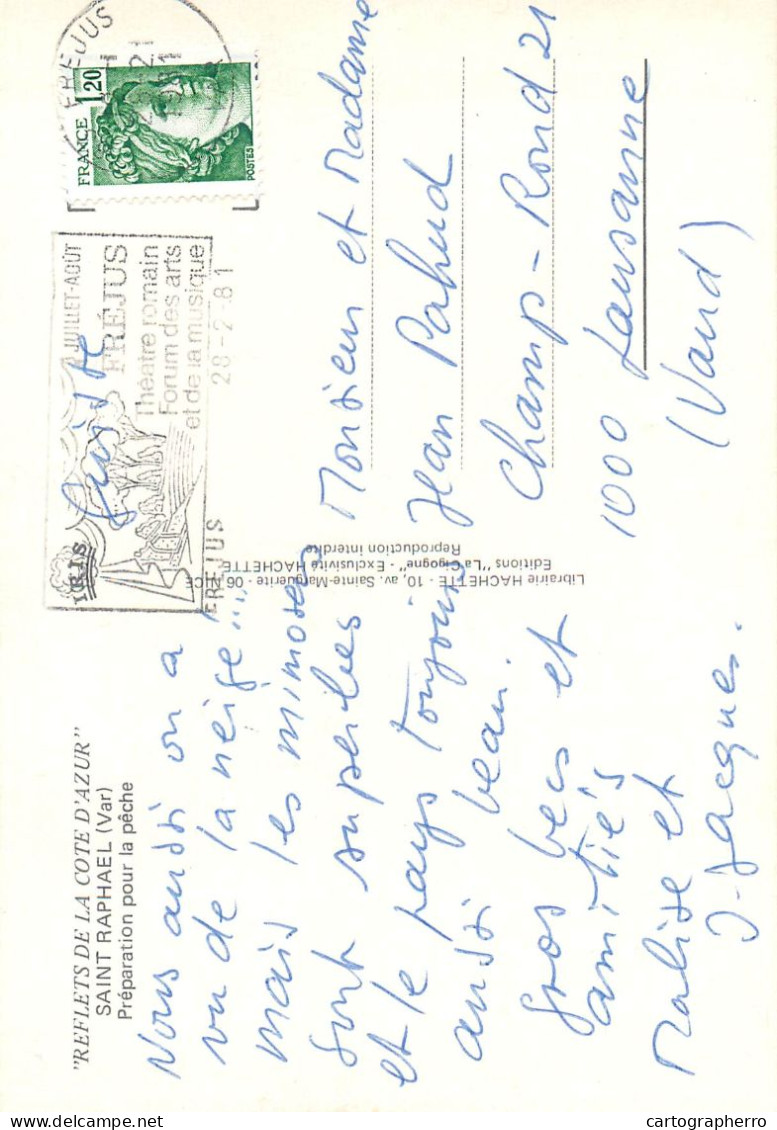 "REFLETS DE LA COTE D'AZUR"
SAINT RAPHAEL (Var)
Préparation pour la pêche
Nous aussi on a
vu de la neige....
mais les mimosas
sont superbes
et le pays toujours
aussi beau.
Gros becs et
amitiés
Malise et
J-Jacques.
Librairie HACHETTE - 10, av. Sainte-Marguerite - 06 NICE
Editions "La Cigogne" - Exclusivité HACHETTE
Reproduction interdite
FREJUS
21
1981
FRANCE 1,20
POSTES
JUILLET-AOÛT
FRÉJUS
Théatre romain
Forum des arts
et de la musique
IRIS
FREJUS
28-2-81
Suisse
Monsieur et Madame
Jean Pahud
Champ-Rond 21
1000 Lausanne
(Vaud)
cartographerro